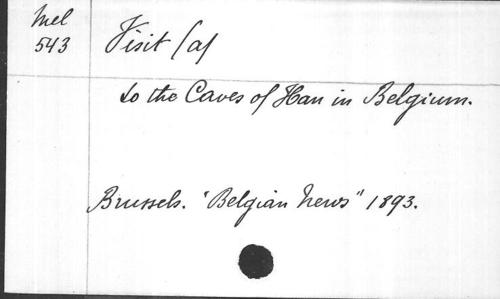 Mel
543
Visit (a)
to the Caves of Han in Belgium.
Brussels. "Belgian News" 1893.